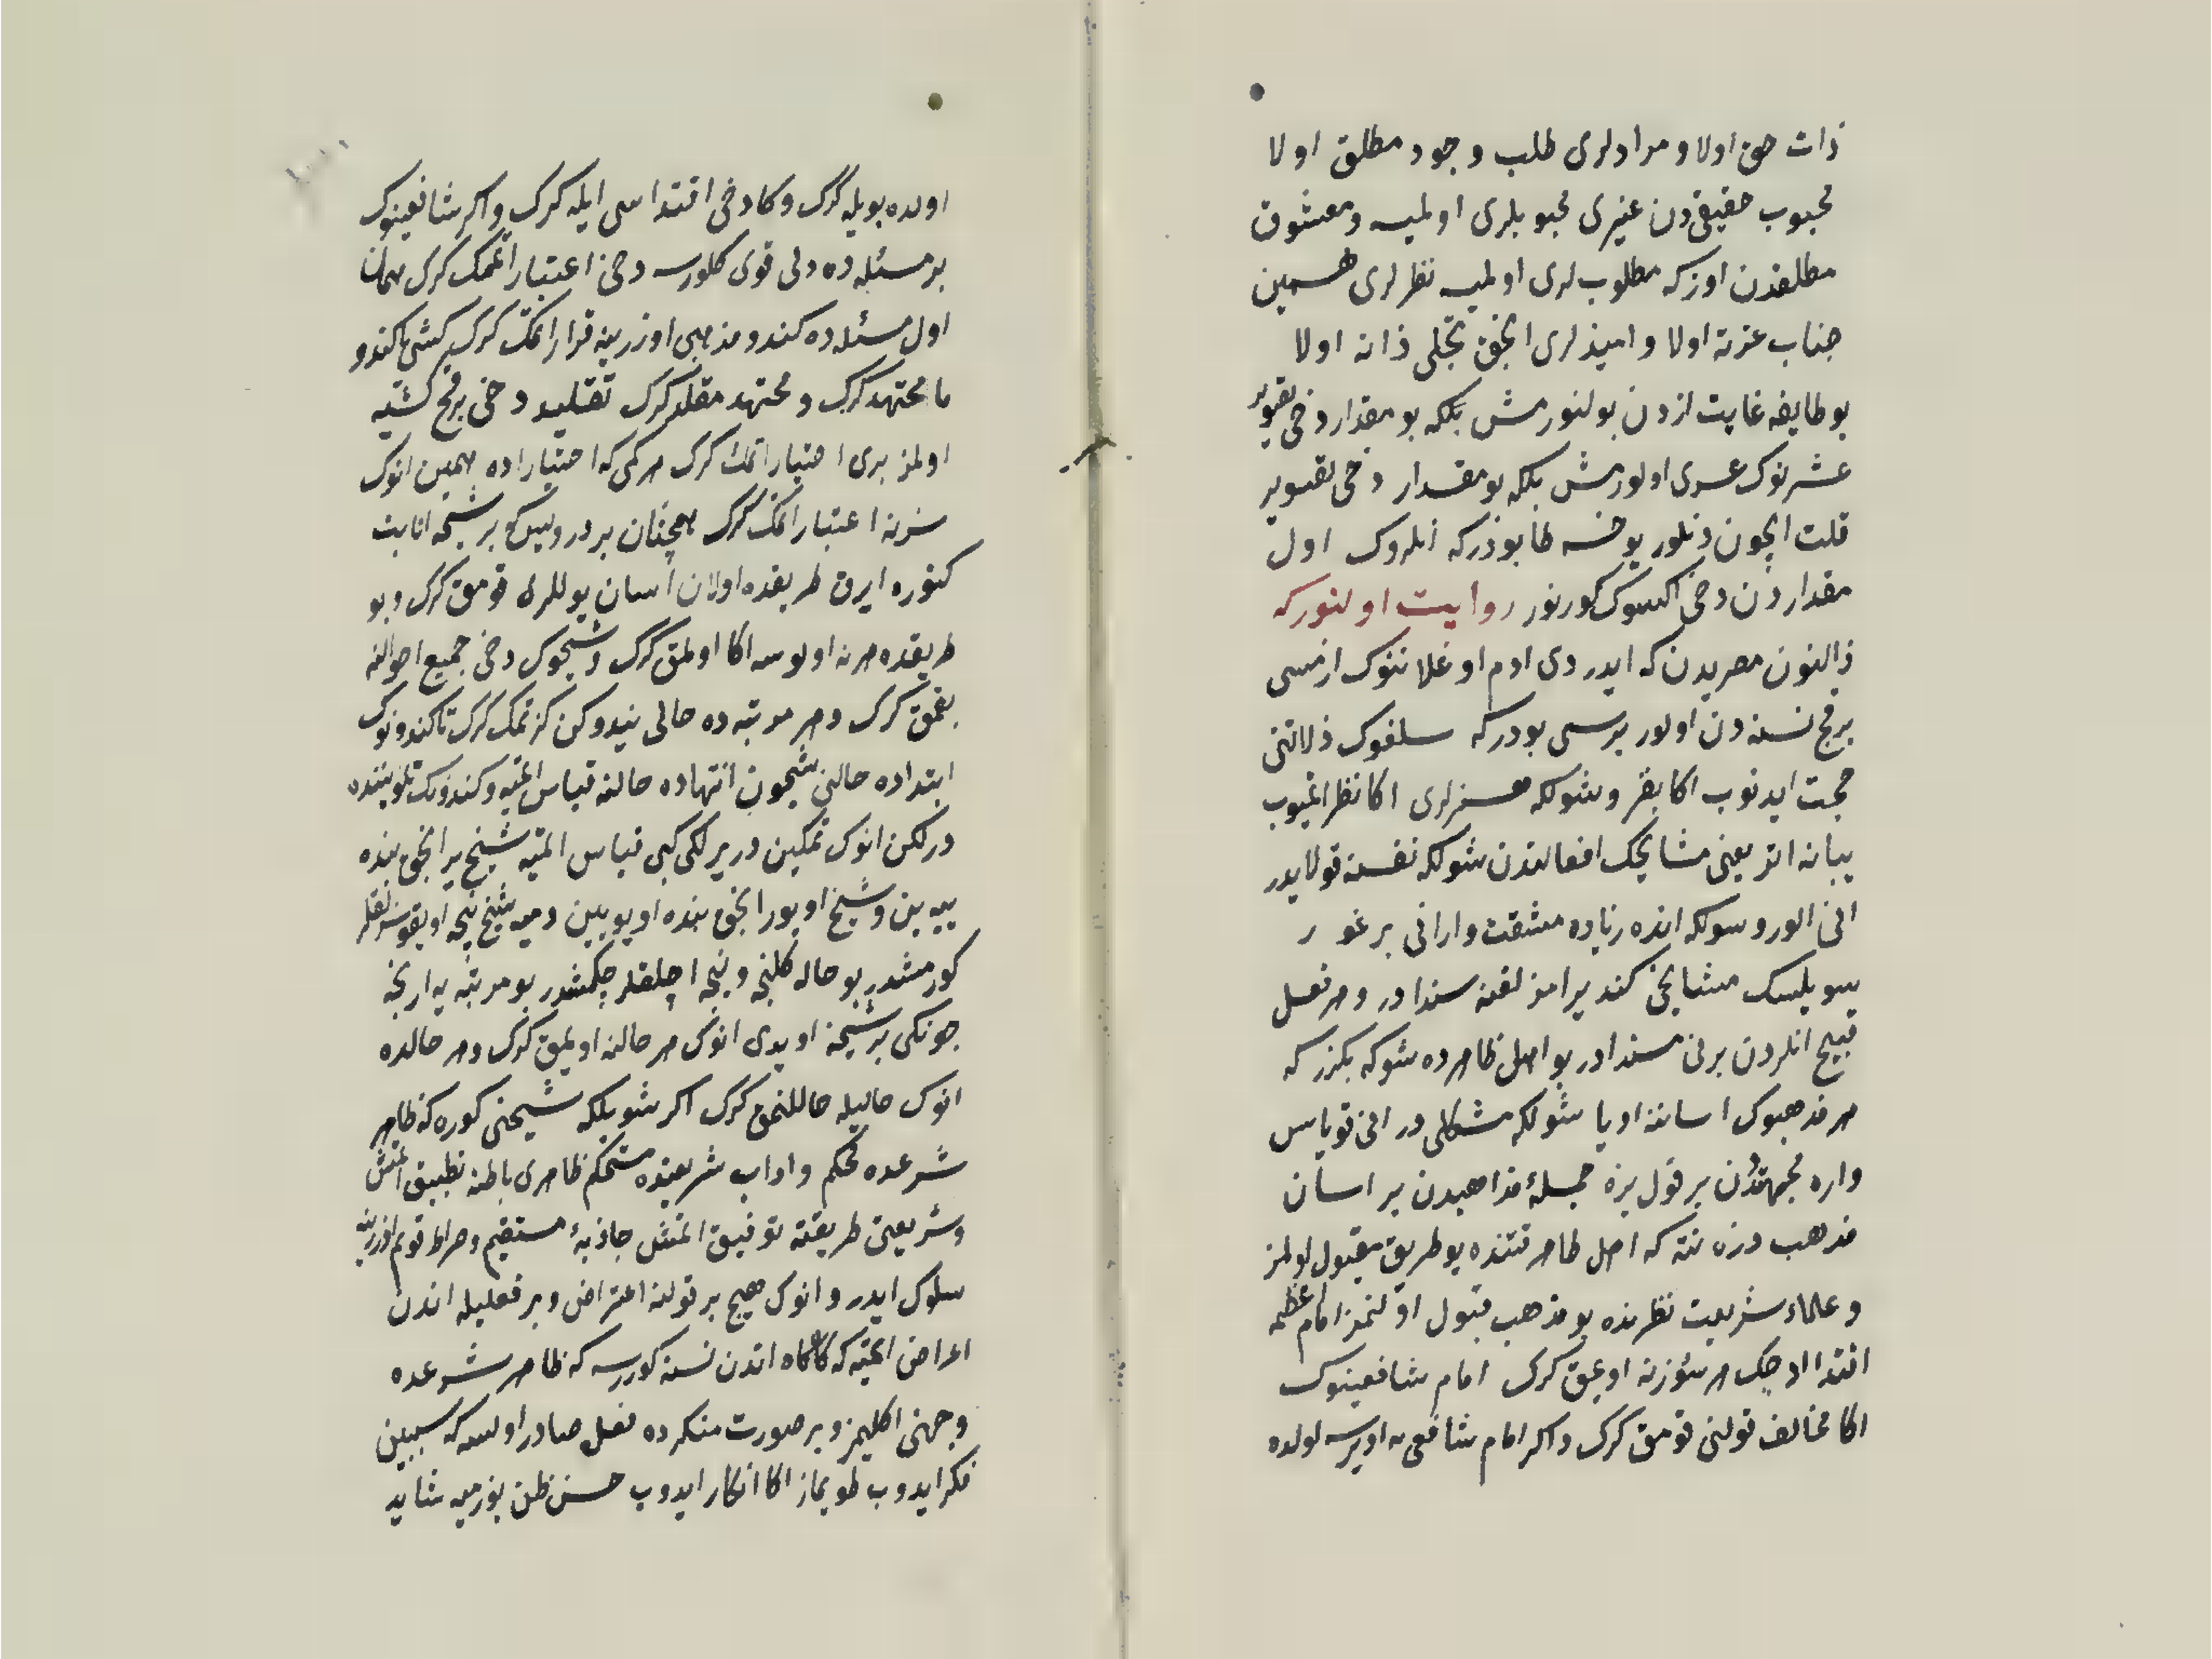 ذات حق اولا و مرادلری طلب وجود مطلق اولا
محبوب حقیقیدن غیری محبوبلری اولمیه و معشوق
مطلقدن اوزکه مطلوبلری اولمیه نظرلری همین
جناب عزته اولا و امیدلری انجق تجلی ذاته اولا
بو طایفه غایت ازدن بولنورمش بلکه بو مقدار دخی
عشرنوک عسری اولورمش بلکه بو مقدار دخی تقویر
قلت ایچون دنلور یوخسه
مقداردن دخی اکسوک کورنور روایت اولنورکه
ذالنون مصریدن که ایدر دی ادم اوغلاننوک ازمسی
برقچ نسنه دن اولور برسی بودرکه سلفوک ذلاتنی
حجت ایدنوب اکا بقر و شولکه هنرلری اکا نظر اتمیوب
یبانه اتر یعنی مشایخک افعالندن شولکه نفسنه قولایدر
انی الور و شولکه انده زیاده مشقت وار انی برغور
سویلسک مشایخی کندیر امز لقنه سندادر و هر فعل
قبیح انلردن برنی سندادر بو اهل ظاهرده شوکه بکزرکه
هر مذهبوک اساننه اویا شولکه مشکلی در انی قویا س
واره مجتهددن بر قول یزه جمله مذاهبدن بر اسان
مذهب دزه نته که اهل ظاهر قتنده بو طریق مقبول اولمز
و علماء شریعت نظرنده بو مذهب قبول اولنمز امام اعظمه
اقتدا ادجک هر سوزنه اویمق کرک امام شافعینوک
اکا مخالف قولنی قومق کرک و اکر امام شافعی یه اویرسه اولده
اولده بویله کرک وکا دخی اقتداسی ایله کرک و اکر شافعینوک
بر مسئله ده دلی قوی کلورسه دخی اعتبار اتممک کرک همان
اول مسئله ده کندو مذهبی اوزرینه قرار اتمک کرک کشی کندو
یا مجتهد کرک و مجتهد مقلد کرک تقلید دخی برقچ کشیه
اولمز بری اختیار اتمک کرک هر کمی که اختیار اده همین انوک
سوزنه اعتبار اتمک کرک همچنان بر درویش بر شیخه انابت
کتوره ایرق طریقده اولان اسان یوللره قومق کرک و بو
طریقده هر نه اولورسه اکا اولمق کرک و شیخوک دخی جمیع احوالنه
بقمق کرک و هر مرتبه ده حالی نیدوکن کزتمک کرک تا کندونوک
ابتداده حالنی شیخون انتهاده حالنه قیاس اتمیه و کندونک تلویننده
درلکن انوک تمکین دریرلکی کبی قیاس اتمیه شیخ یر انجق بنده
ییه ین و شیخ اویور انجق بنده اویویین دمیه شیخ نیجه اویقوسزلقلر
کورمشدر بو حاله کلنجه و نیجه اچلقلر چکمشدر بو مرتبه یه ارنجه
چونکی بر شیخه اویدی انوک هر حالنه اویمق کرک و هر حالده
انوک حالیله حاللنمق کرک اکر شویلکه شیخنی کوره که ظاهر
شرعده محکم و اداب شریعتده مستحکم ظاهری باطنه تطبیق اتمش
و شریعتی طریقته توفیق اتمش جاذبه مستقیم و صراط قویم اوزرینه
سلوک ایدر و انوک هیچ بر قولنه اعتراض و بر فعلیله اندن
اعراض اتمیه که کاه کاه اندن نسنه کوررسه که ظاهر شرعده
وجهنی اکلیمز و بر صورت منکرده فعل صادر اولسه که سببین
فکر ایدوب طویماز اکا انکار ایدوب حسن ظن بوزمیه شاید